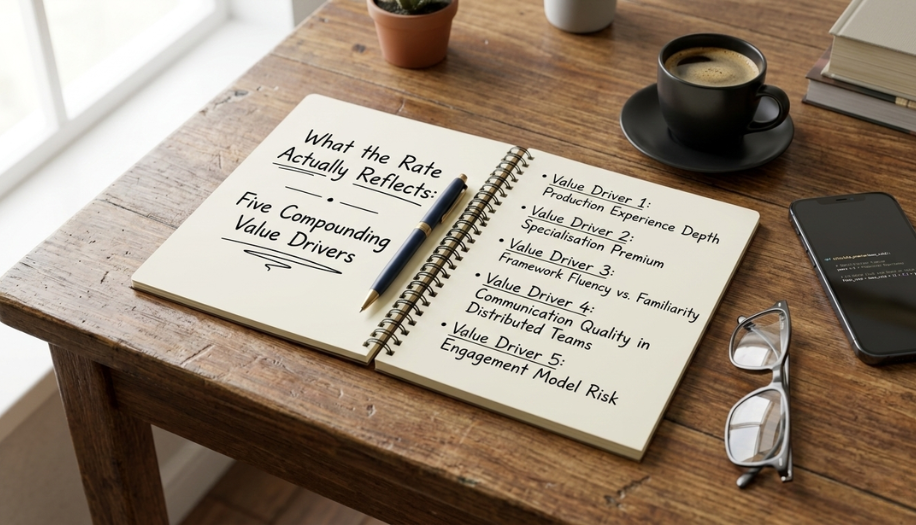 What the Rate
Actually Reflects:
Five Compounding
Value Drivers
• Value Driver 1:
Production Experience Depth
• Value Driver 2:
Specialisation Premium
• Value Driver 3:
Framework Fluency vs. Familiarity
• Value Driver 4:
Communication Quality in
Distributed Teams
• Value Driver 5:
Engagement Model Risk